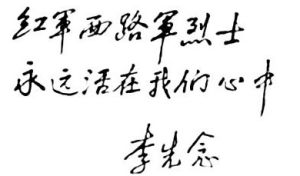 红军西路军烈士
永远活在我们心中
李先念